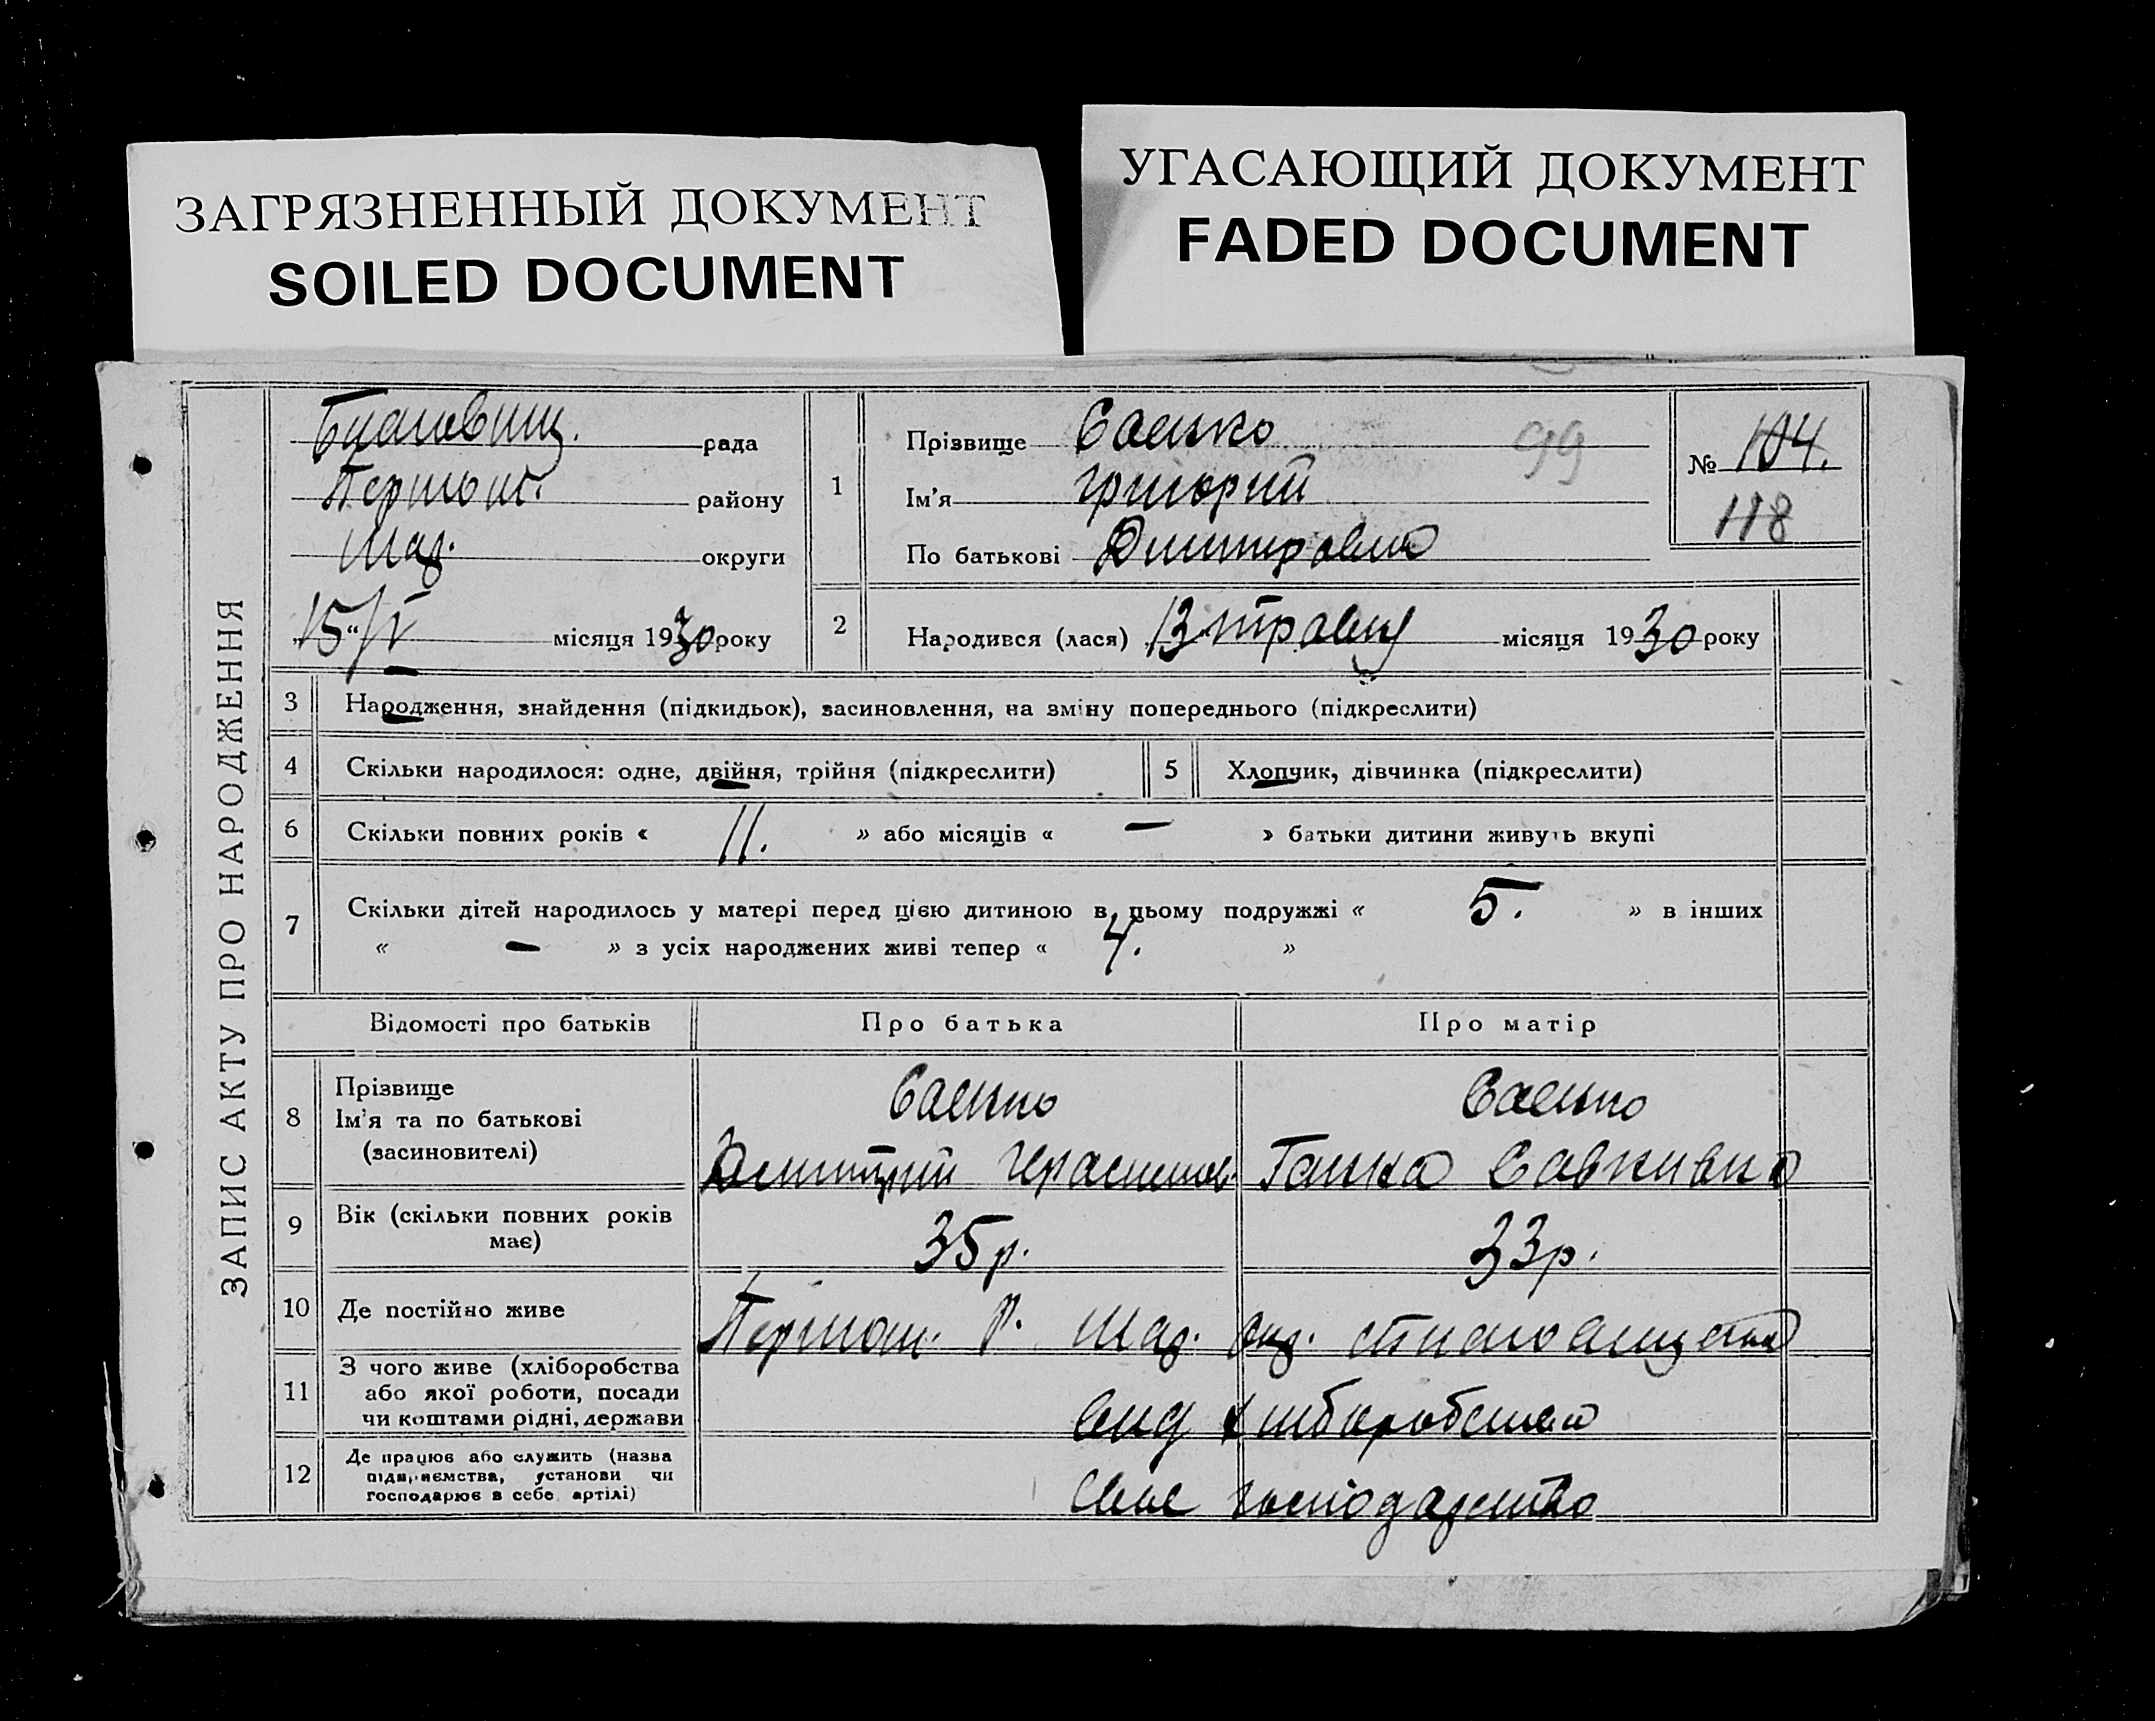 ЗАГРЯЗНЕННЫЙ ДОКУМЕНТ
SOILED DOCUMENT
УГАСАЮЩИЙ ДОКУМЕНТ
FADED DOCUMENT
ЗАПИС АКТУ ПРО НАРОДЖЕННЯ
рада
району
округи
„15“/V місяця 1930 року
1
Прізвище Саенко
99
Ім'я Григорий
По батькові
№ 104.
118
2
Народився (лася) 13 травня місяця 1930 року
3 Народження, знайдення (підкидьок), засиновлення, на зміну попереднього (підкреслити)
4 Скільки народилося: одне, двійня, трійня (підкреслити)
5 Хлопчик, дівчинка (підкреслити)
6 Скільки повних років « 11. » або місяців « — » батьки дитини живуть вкупі
7 Скільки дітей народилось у матері перед цією дитиною в цьому подружжі « 5. » в інших
« — » з усіх народжених живі тепер « 4. »
Відомості про батьків
Про батька
Про матір
8 Прізвище
Ім'я та по батькові
(засиновителі)
Саенко
Дмитрий Герасимов.
Саенко
Ганна Савківна
9 Вік (скільки повних років
має)
35 р.
33 р.
10 Де постійно живе
Р. Шад. окр.
11 З чого живе (хліборобства
або якої роботи, посади
чи коштами рідні, держави
хліборобства
12 Де працює або служить (назва
підприємства, установи чи
господарює в себе артілі)
Своє господарство